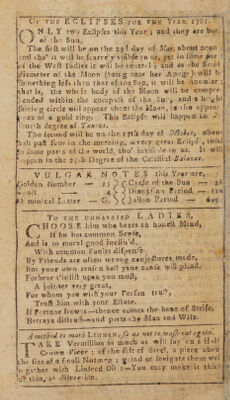 Of the ECLIPSES for the Year 1781.
ONLY two Eclipses this Year; and they are both
of the Sun.
The first will be on the 23d day of May, about noon
and tho' it will be scarce visible to us, yet in some part
of the West Indies it will be central; and as the
diameter of the Moon (being near her Apogee) will be
something less than that of the Sun, it will be Annular;
that is, the whole body of the Moon will be compre-
hended within the compass of the Sun, and a bright
shining circle will appear about the Moon, in the appear-
ance of a gold ring. This Eclipse will happen in
degree of Taurus.
The second will be on the 17th day of October, about
half past four in the morning, a very great Eclipse, total
in some parts of the world, tho' invisible to us. It will
happen in the 25th Degree of the Celestial Balance.
VULGAR NOTES this Year are,
Golden Number — 15 Circle of the Sun —
Epact
Dominical Letter — G. Julian Period —
To the UNMARRIED LADIES,
CHOOSE him who bears an honest Mind,
If he has common Sense,
And is to moral good inclin'd,
With common Faults dispense.
By Friends are often wrong conjectures made,
But your own reason half your cause will plead.
Forbear t'insist upon too much,
A jointure very great,
For whom you with your Person trust,
Trust him with your Estate.
If Fortune frowns—thence comes the bone of Strife,
Betrays distrust—and parts the Man and Wife.
A method to mark LINNEN, so as not to wash out again.
TAKE Vermillion as much as will lay on a Half
Crown Piece; of the salt of Steel, a piece about
the size of a small Nutmeg; grind or levigate them well
together with Linseed Oil: You may make it thick
or thin, at discretion.